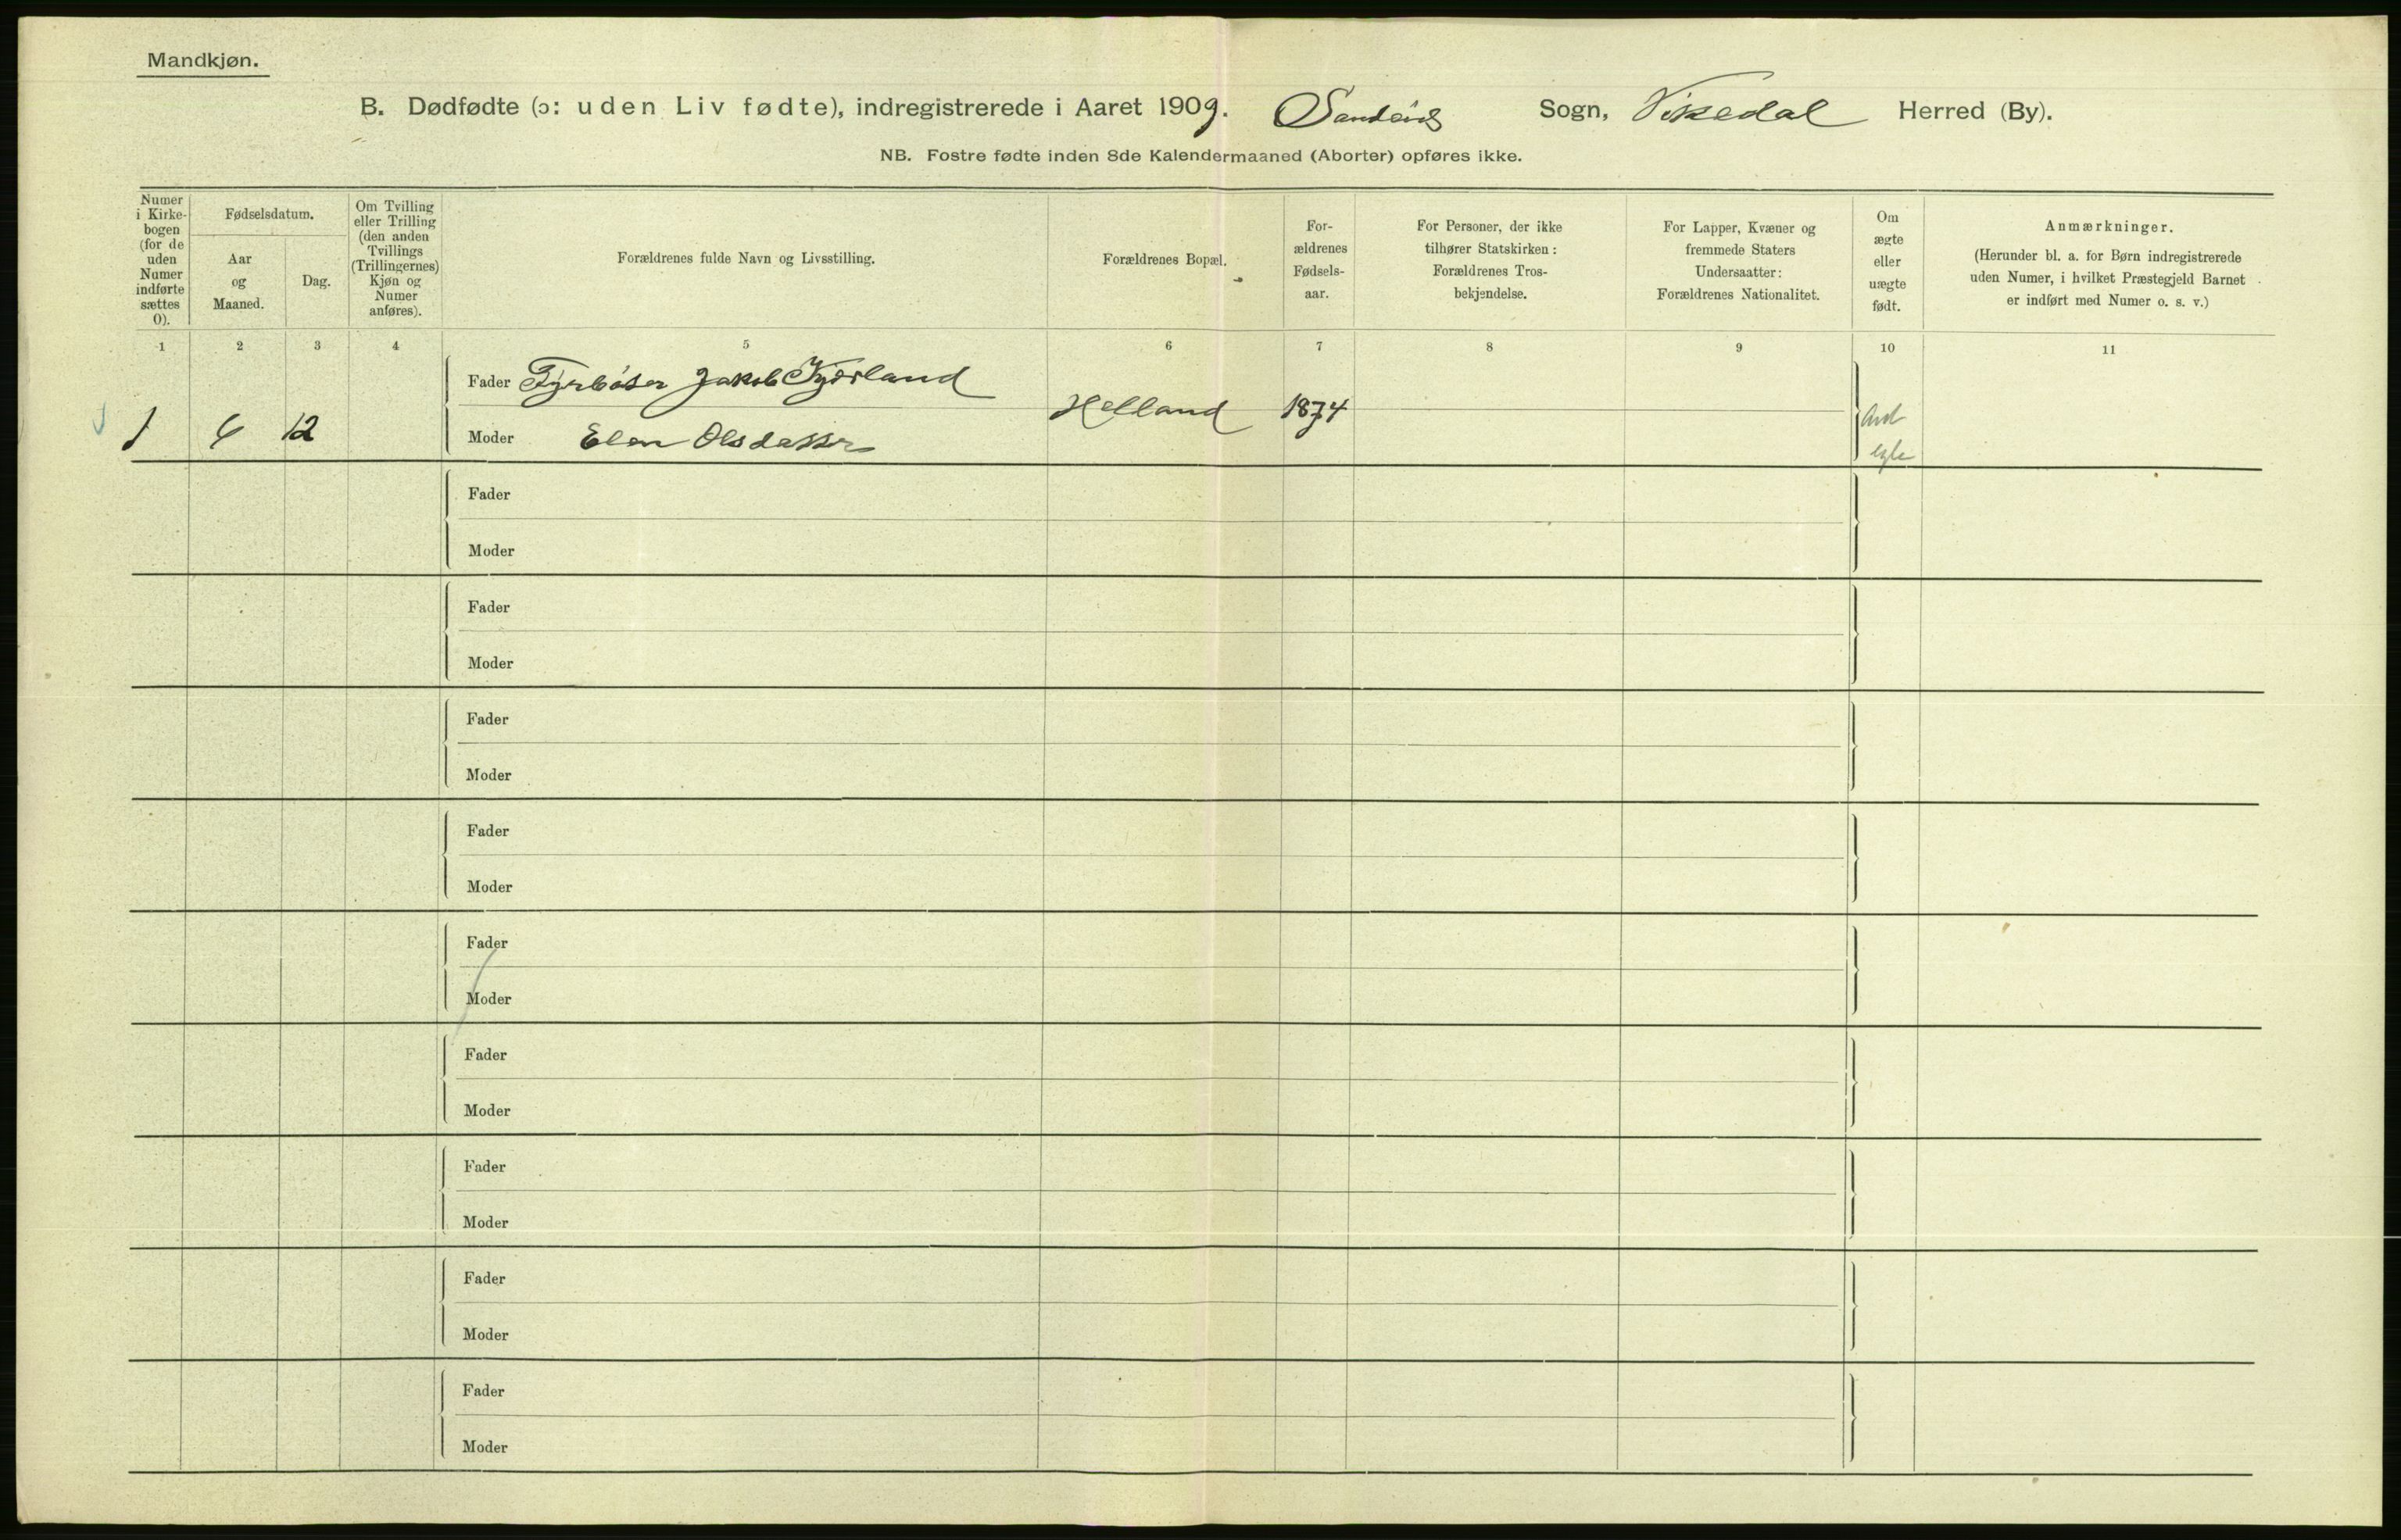 Mandkjøn.
B. Dødfødte (ɔ: uden Liv fødte), indregistrerede i Aaret 1909. Sandeid Sogn, Vikedal Herred (By).
NB. Fostre fødte inden 8de Kalendermaaned (Aborter) opføres ikke.
Numer
i Kirke-
bogen
(for de
uden
Numer
indførte
sættes
0).
Fødselsdatum.
Aar
og
Maaned.
Dag.
Om Tvilling
eller Trilling
(den anden
Tvillings
(Trillingernes)
Kjøn og
Numer
anføres).
Forældrenes fulde Navn og Livsstilling.
Forældrenes Bopæl.
For-
ældrenes
Fødsels-
aar.
For Personer, der ikke
tilhører Statskirken:
Forældrenes Tros-
bekjendelse.
For Lapper, Kvæner og
fremmede Staters
Undersaatter:
Forældrenes Nationalitet.
Om
ægte
eller
uægte
født.
Anmærkninger.
(Herunder bl. a. for Børn indregistrerede
uden Numer, i hvilket Præstegjeld Barnet
er indført med Numer o. s. v.)
1 2 3 4 5 6 7 8 9 10 11
Fader Fyrbøder Jakob
1 6 12 Helland 1874
Moder Elen Olsdatter
Fader
Moder
Fader
Moder
Fader
Moder
Fader
Moder
Fader
Moder
Fader
Moder
Fader
Moder
Fader
Moder
Fader
Moder